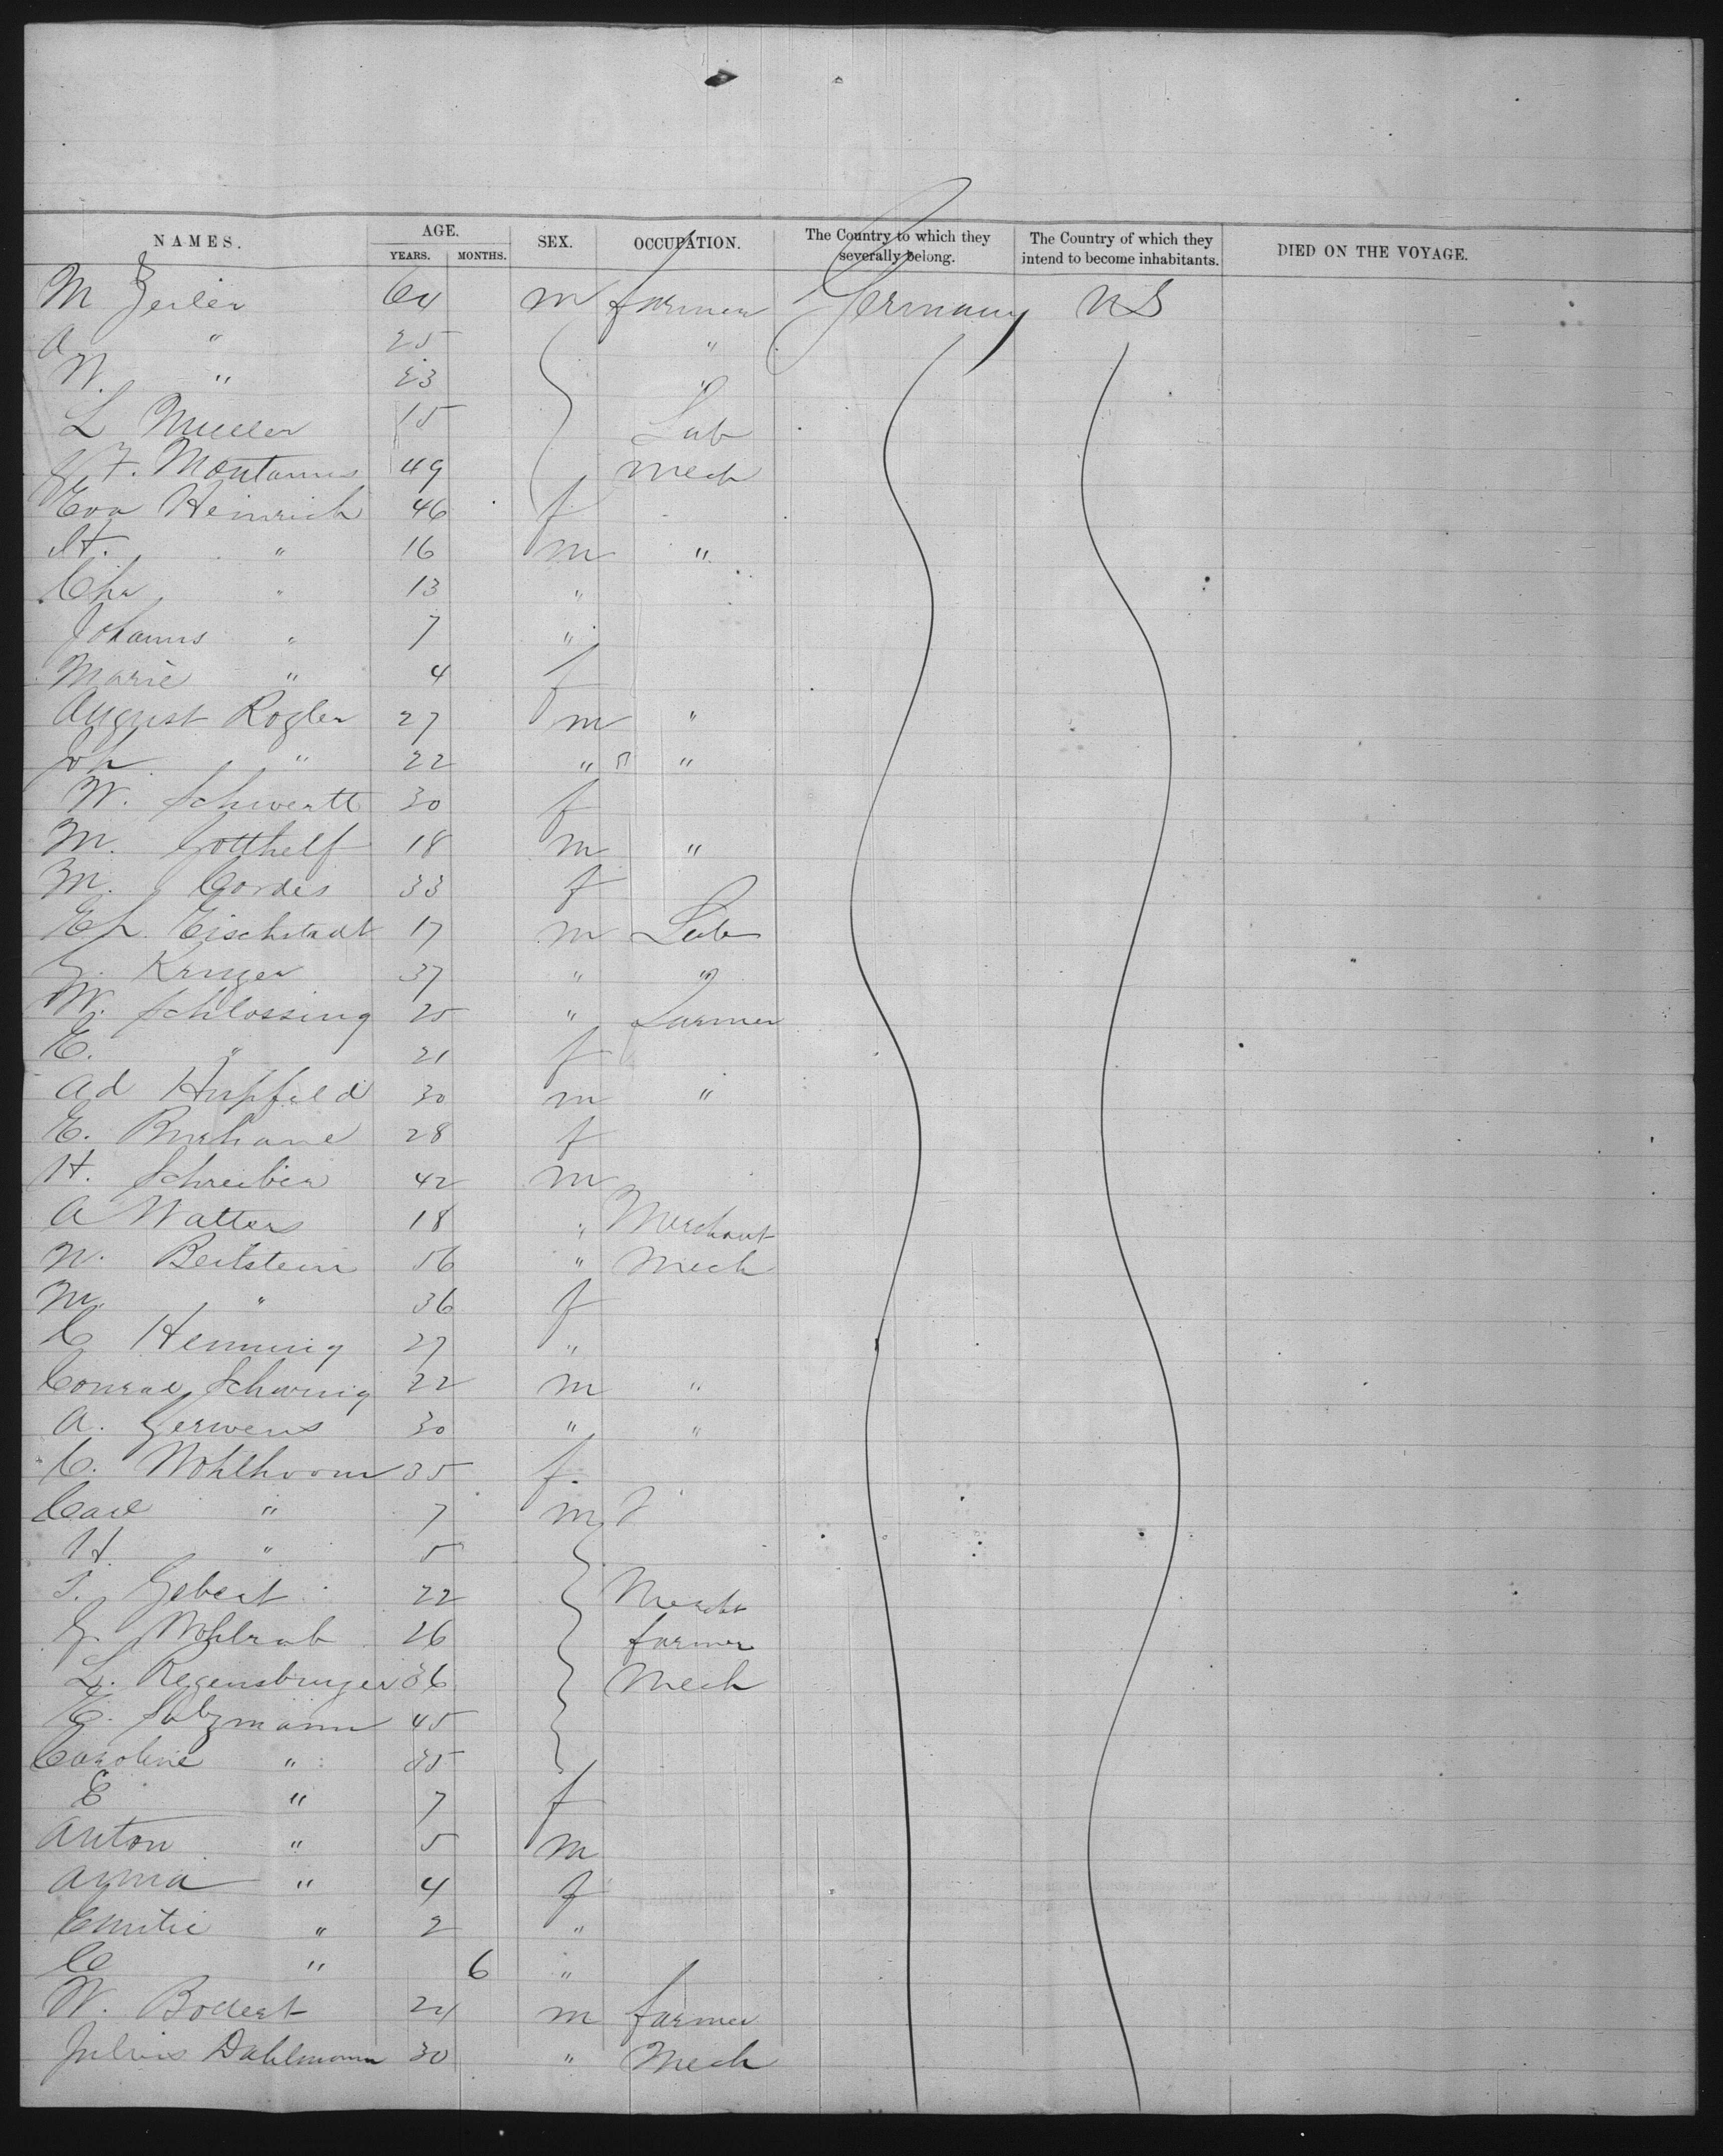 NAMES. AGE. YEARS. MONTHS. SEX. OCCUPATION. The Country to which they severally belong. The Country of which they intend to become inhabitants. DIED ON THE VOYAGE.
M Zeiler 64 m farmer Germany US
A " 25 "
W. " 23 "
L Mueller 15 Lab
F. Montanus 49 Mech
Eva Heinrich 46 f
H. " 16 m "
Chr " 13 "
Johanns " 7 "
Marie " 4 f
August Rogler 27 m "
Joh " 22 " "
W. Schwertt 30 f
M. Gotthelf 18 m "
M. Cordes 33 f
Eh Eischstadt 17 m Lab
G. Kruger 37 " "
W. Schlossing 25 " Farmer
E. " 21 f
Ad Hupfeld 30 m "
E. Burhane 28 f
H. Schreiber 42 m
A Watters 18 " Merchant
N. Beilstein 56 " Mech
M. " 36 f
C Henning 27 "
Conrad Schwenig 22 m "
A. Gerwens 30 " "
C. Wohlhoom 35 f.
Carl " 7 m
H. " 5
T. Gebert 22 Mercht
G. Wohlrab 26 farmer
L. Regensburger 36 Mech
E. Salzmann 45
Caroline " 35
E " 7 f
Anton " 5 m
Anna " 4 f
Emilie " 2 "
C " 6 "
W. Bodert 24 m farmer
Julius Dahlmann 30 " Mech